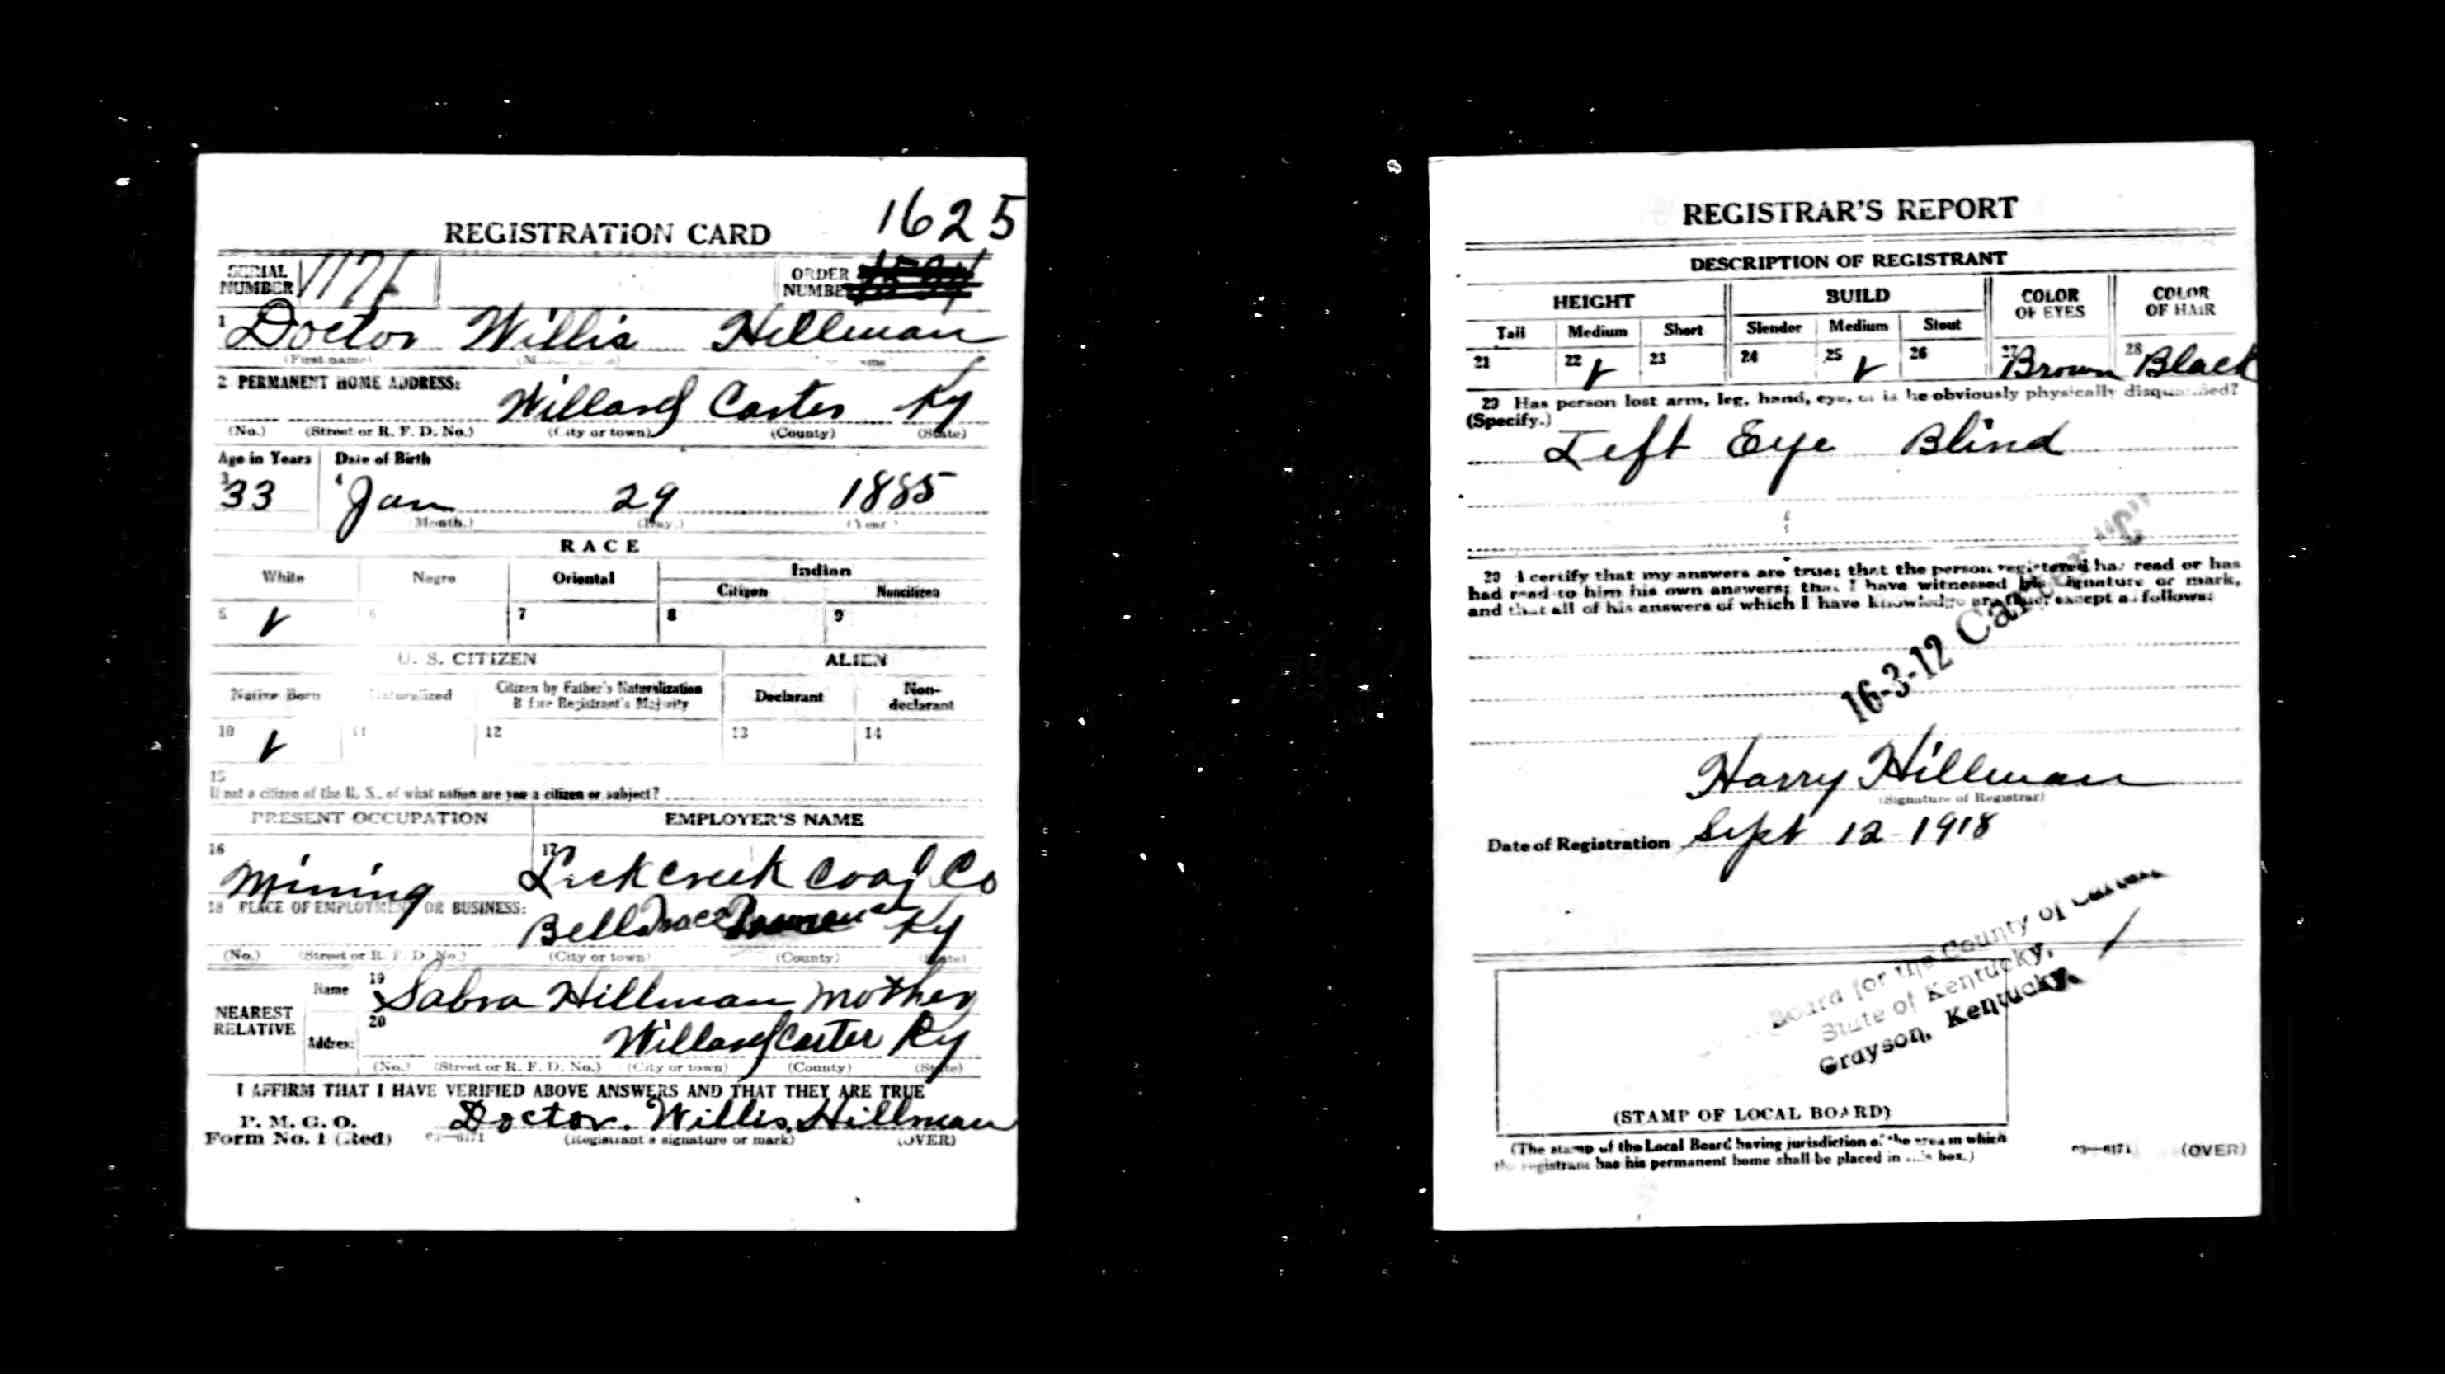 1625
REGISTRATION CARD
SERIAL NUMBER
ORDER NUMBER
1 Doctor Willis Hillman
(First name)
2 PERMANENT HOME ADDRESS:
Willard Carter Ky
(No.) (Street or R. F. D. No.) (City or town) (County) (State)
Age in Years Date of Birth
3 33 4 Jan 29 1885
(Month.) (Day.) (Year.)
RACE
White Negro Oriental Indian
Citizen Noncitizen
5 6 7 8 9
U. S. CITIZEN ALIEN
Native Born Naturalized Citizen by Father's Naturalization Before Registrant's Majority Declarant Non-declarant
10 11 12 13 14
15
If not a citizen of the U. S., of what nation are you a citizen or subject?
PRESENT OCCUPATION EMPLOYER'S NAME
16 Mining 17 Lick Creek Coal Co
18 PLACE OF EMPLOYMENT OR BUSINESS:
Ky
(No.) (Street or R. F. D. No.) (City or town) (County) (State)
NEAREST RELATIVE Name 19 Sabra Hillman Mother
Address 20 Willard Carter Ky
(No.) (Street or R. F. D. No.) (City or town) (County) (State)
I AFFIRM THAT I HAVE VERIFIED ABOVE ANSWERS AND THAT THEY ARE TRUE
P. M. G. O.
Form No. 1 (Red) Doctor. Willis. Hillman
(Registrant's signature or mark) (OVER)
REGISTRAR'S REPORT
DESCRIPTION OF REGISTRANT
HEIGHT BUILD COLOR OF EYES COLOR OF HAIR
Tall Medium Short Slender Medium Stout
21 22 23 24 25 26 27 Brown 28 Black
29 Has person lost arm, leg, hand, eye, or is he obviously physically disqualified?
(Specify.)
Left Eye Blind
30 I certify that my answers are true; that the person registered has read or has
had read to him his own answers; that I have witnessed his signature or mark,
and that all of his answers of which I have knowledge are true, except as follows:
16-3-12 Carter "C"
Harry Hillman
(Signature of Registrar)
Date of Registration Sept 12 1918
Board for the County of Carter,
State of Kentucky,
Grayson, Kentucky
(STAMP OF LOCAL BOARD)
(The stamp of the Local Board having jurisdiction of the area in which
the registrant has his permanent home shall be placed in this box.)
03—6171 (OVER)